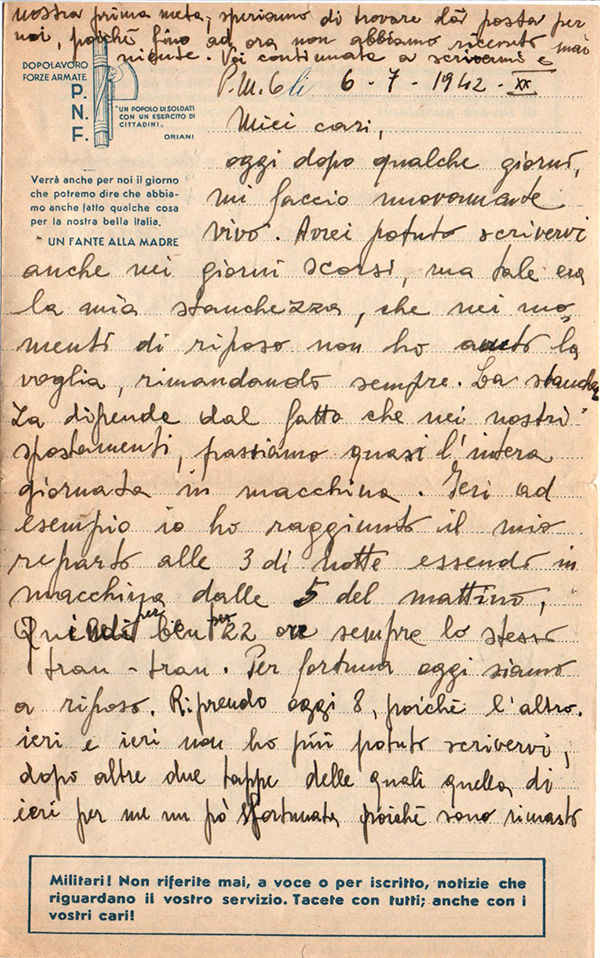 nostra prima meta, speriamo di trovare là posta per
noi, poiché fino ad ora non abbiamo ricevuto mai
niente. Voi continuate a scrivermi e
DOPOLAVORO
FORZE ARMATE
P.
N.
F.
"UN POPOLO DI SOLDATI
CON UN ESERCITO DI
CITTADINI.
ORIANI
Verrà anche per noi il giorno
che potremo dire che abbia-
mo anche fatto qualche cosa
per la nostra bella Italia.
" UN FANTE ALLA MADRE
P.M. 61 6 - 7 - 1942 - XX
Miei cari,
oggi dopo qualche giorno,
mi faccio nuovamente
vivo. Avrei potuto scrivervi
anche nei giorni scorsi, ma tale era
la mia stanchezza, che nei mo
menti di riposo non ho avuto la
voglia, rimandando sempre. La stanchez
za dipende dal fatto che nei nostri
spostamenti, passiamo quasi l'intera
giornata in macchina. Ieri ad
esempio io ho raggiunto il mio
reparto alle 3 di notte essendo in
macchina dalle 5 del mattino,
Quindi per ben 22 ore sempre lo stesso
tran-tran. Per fortuna oggi siamo
a riposo. Riprendo oggi 8, poiché l'altro.
ieri e ieri non ho più potuto scrivervi,
dopo altre due tappe delle quali quella di
ieri per me un pò sfortunata poiché sono rimasto
Militari! Non riferite mai, a voce o per iscritto, notizie che
riguardano il vostro servizio. Tacete con tutti; anche con i
vostri cari!